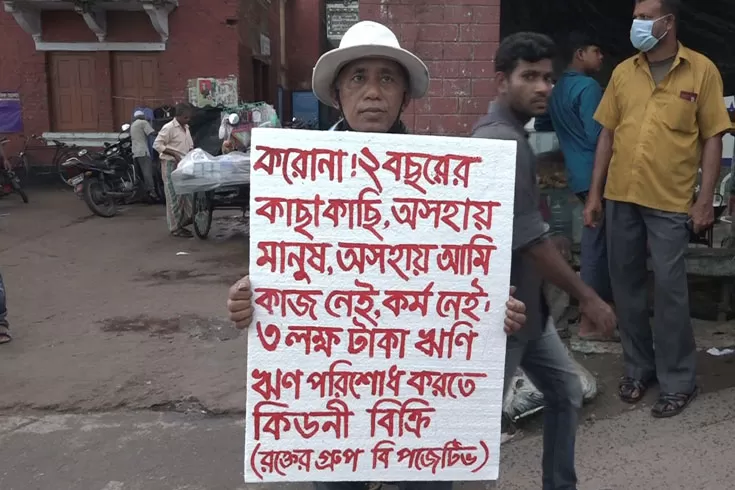 করোনা! ২ বছরের
কাছাকাছি, অসহায়
মানুষ, অসহায় আমি
কাজ নেই, কর্ম নেই।
৩ লক্ষ টাকা ঋণি
ঋণ পরিশোধ করতে
কিডনী বিক্রি
(রক্তের গ্রুপ বি পজেটিভ)